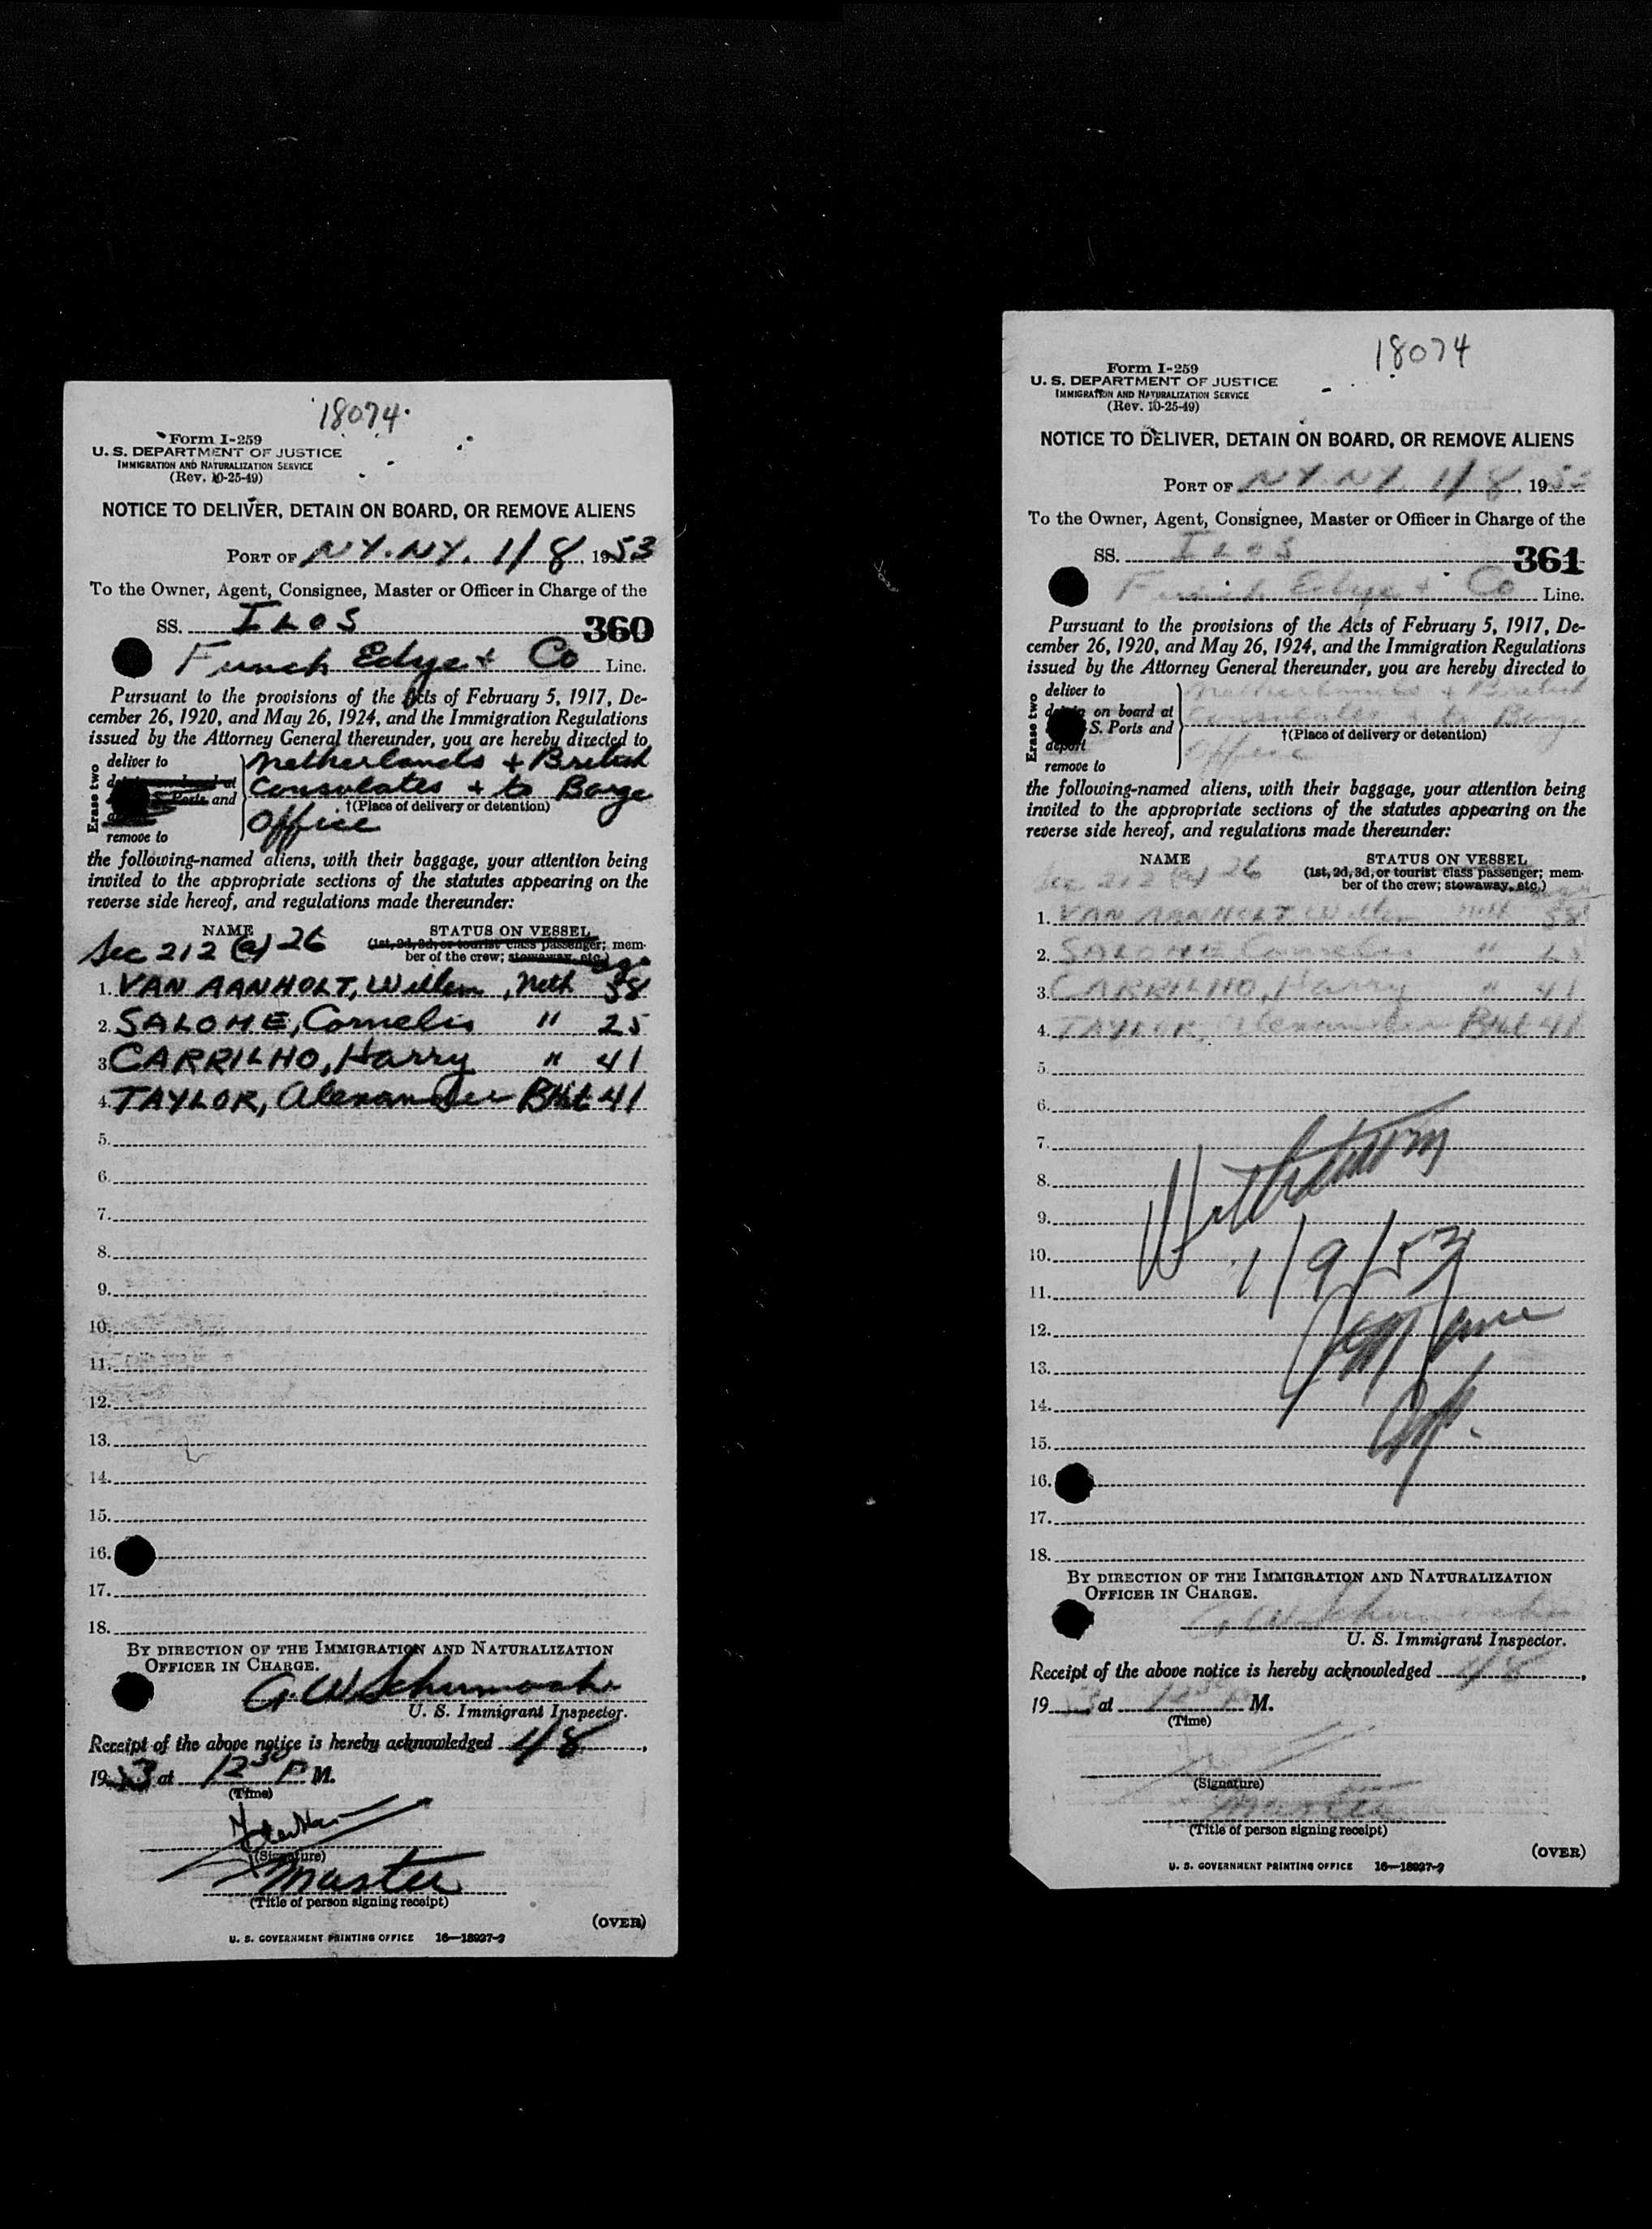 18074
Form I-259
U. S. DEPARTMENT OF JUSTICE
IMMIGRATION AND NATURALIZATION SERVICE
(Rev. 10-25-49)
NOTICE TO DELIVER, DETAIN ON BOARD, OR REMOVE ALIENS
PORT OF NY. NY. 1/8, 1953
To the Owner, Agent, Consignee, Master or Officer in Charge of the
SS. ILOS 360
Funch Edye + Co Line.
Pursuant to the provisions of the Acts of February 5, 1917, De-
cember 26, 1920, and May 26, 1924, and the Immigration Regulations
issued by the Attorney General thereunder, you are hereby directed to
Erase two
deliver to Netherlands + British
at Consulates + to Barge
Ports and †(Place of delivery or detention)
Office
remove to
the following-named aliens, with their baggage, your attention being
invited to the appropriate sections of the statutes appearing on the
reverse side hereof, and regulations made thereunder:
NAME STATUS ON VESSEL
Sec 212 (a) 26 (1st, 2d, 3d, or tourist class passenger; mem-
ber of the crew; stowaway, etc.) age
1. VAN AANHOLT, Willem, Neth 58
2. SALOME, Cornelis " 25
3. CARRILHO, Harry " 41
4. TAYLOR, Alexander Brit 41
5.
6.
7.
8.
9.
10.
11.
12.
13.
14.
15.
16.
17.
18.
BY DIRECTION OF THE IMMIGRATION AND NATURALIZATION
OFFICER IN CHARGE.
G. W. Schumacher
U. S. Immigrant Inspector.
Receipt of the above notice is hereby acknowledged 1/8,
1953 at 12 30 P M.
(Time)
(Signature)
Master
(Title of person signing receipt)
(OVER)
U. S. GOVERNMENT PRINTING OFFICE 16—18927-2
18074
Form I-259
U. S. DEPARTMENT OF JUSTICE
IMMIGRATION AND NATURALIZATION SERVICE
(Rev. 10-25-49)
NOTICE TO DELIVER, DETAIN ON BOARD, OR REMOVE ALIENS
PORT OF NY. NY. 1/8, 1953
To the Owner, Agent, Consignee, Master or Officer in Charge of the
SS. ILOS 361
Funch Edye + Co Line.
Pursuant to the provisions of the Acts of February 5, 1917, De-
cember 26, 1920, and May 26, 1924, and the Immigration Regulations
issued by the Attorney General thereunder, you are hereby directed to
Erase two
deliver to Netherlands + British
on board at Consulates + to Barge
S. Ports and †(Place of delivery or detention)
deport Office
remove to
the following-named aliens, with their baggage, your attention being
invited to the appropriate sections of the statutes appearing on the
reverse side hereof, and regulations made thereunder:
NAME STATUS ON VESSEL
Sec 212 (a) 26 (1st, 2d, 3d, or tourist class passenger; mem-
ber of the crew; stowaway, etc.) age
1. VAN AANHOLT, Willem Neth 58
2. SALOME, Cornelis " 25
3. CARRILHO, Harry " 41
4. TAYLOR, Alexander Brit 41
5.
6.
7.
8.
9.
10. 1/9/53
11.
12.
13.
14.
15.
16.
17.
18.
BY DIRECTION OF THE IMMIGRATION AND NATURALIZATION
OFFICER IN CHARGE.
G. W. Schumacher
U. S. Immigrant Inspector.
Receipt of the above notice is hereby acknowledged 1/8,
1953 at 12 30 P M.
(Time)
(Signature)
Master
(Title of person signing receipt)
(OVER)
U. S. GOVERNMENT PRINTING OFFICE 16—18927-2